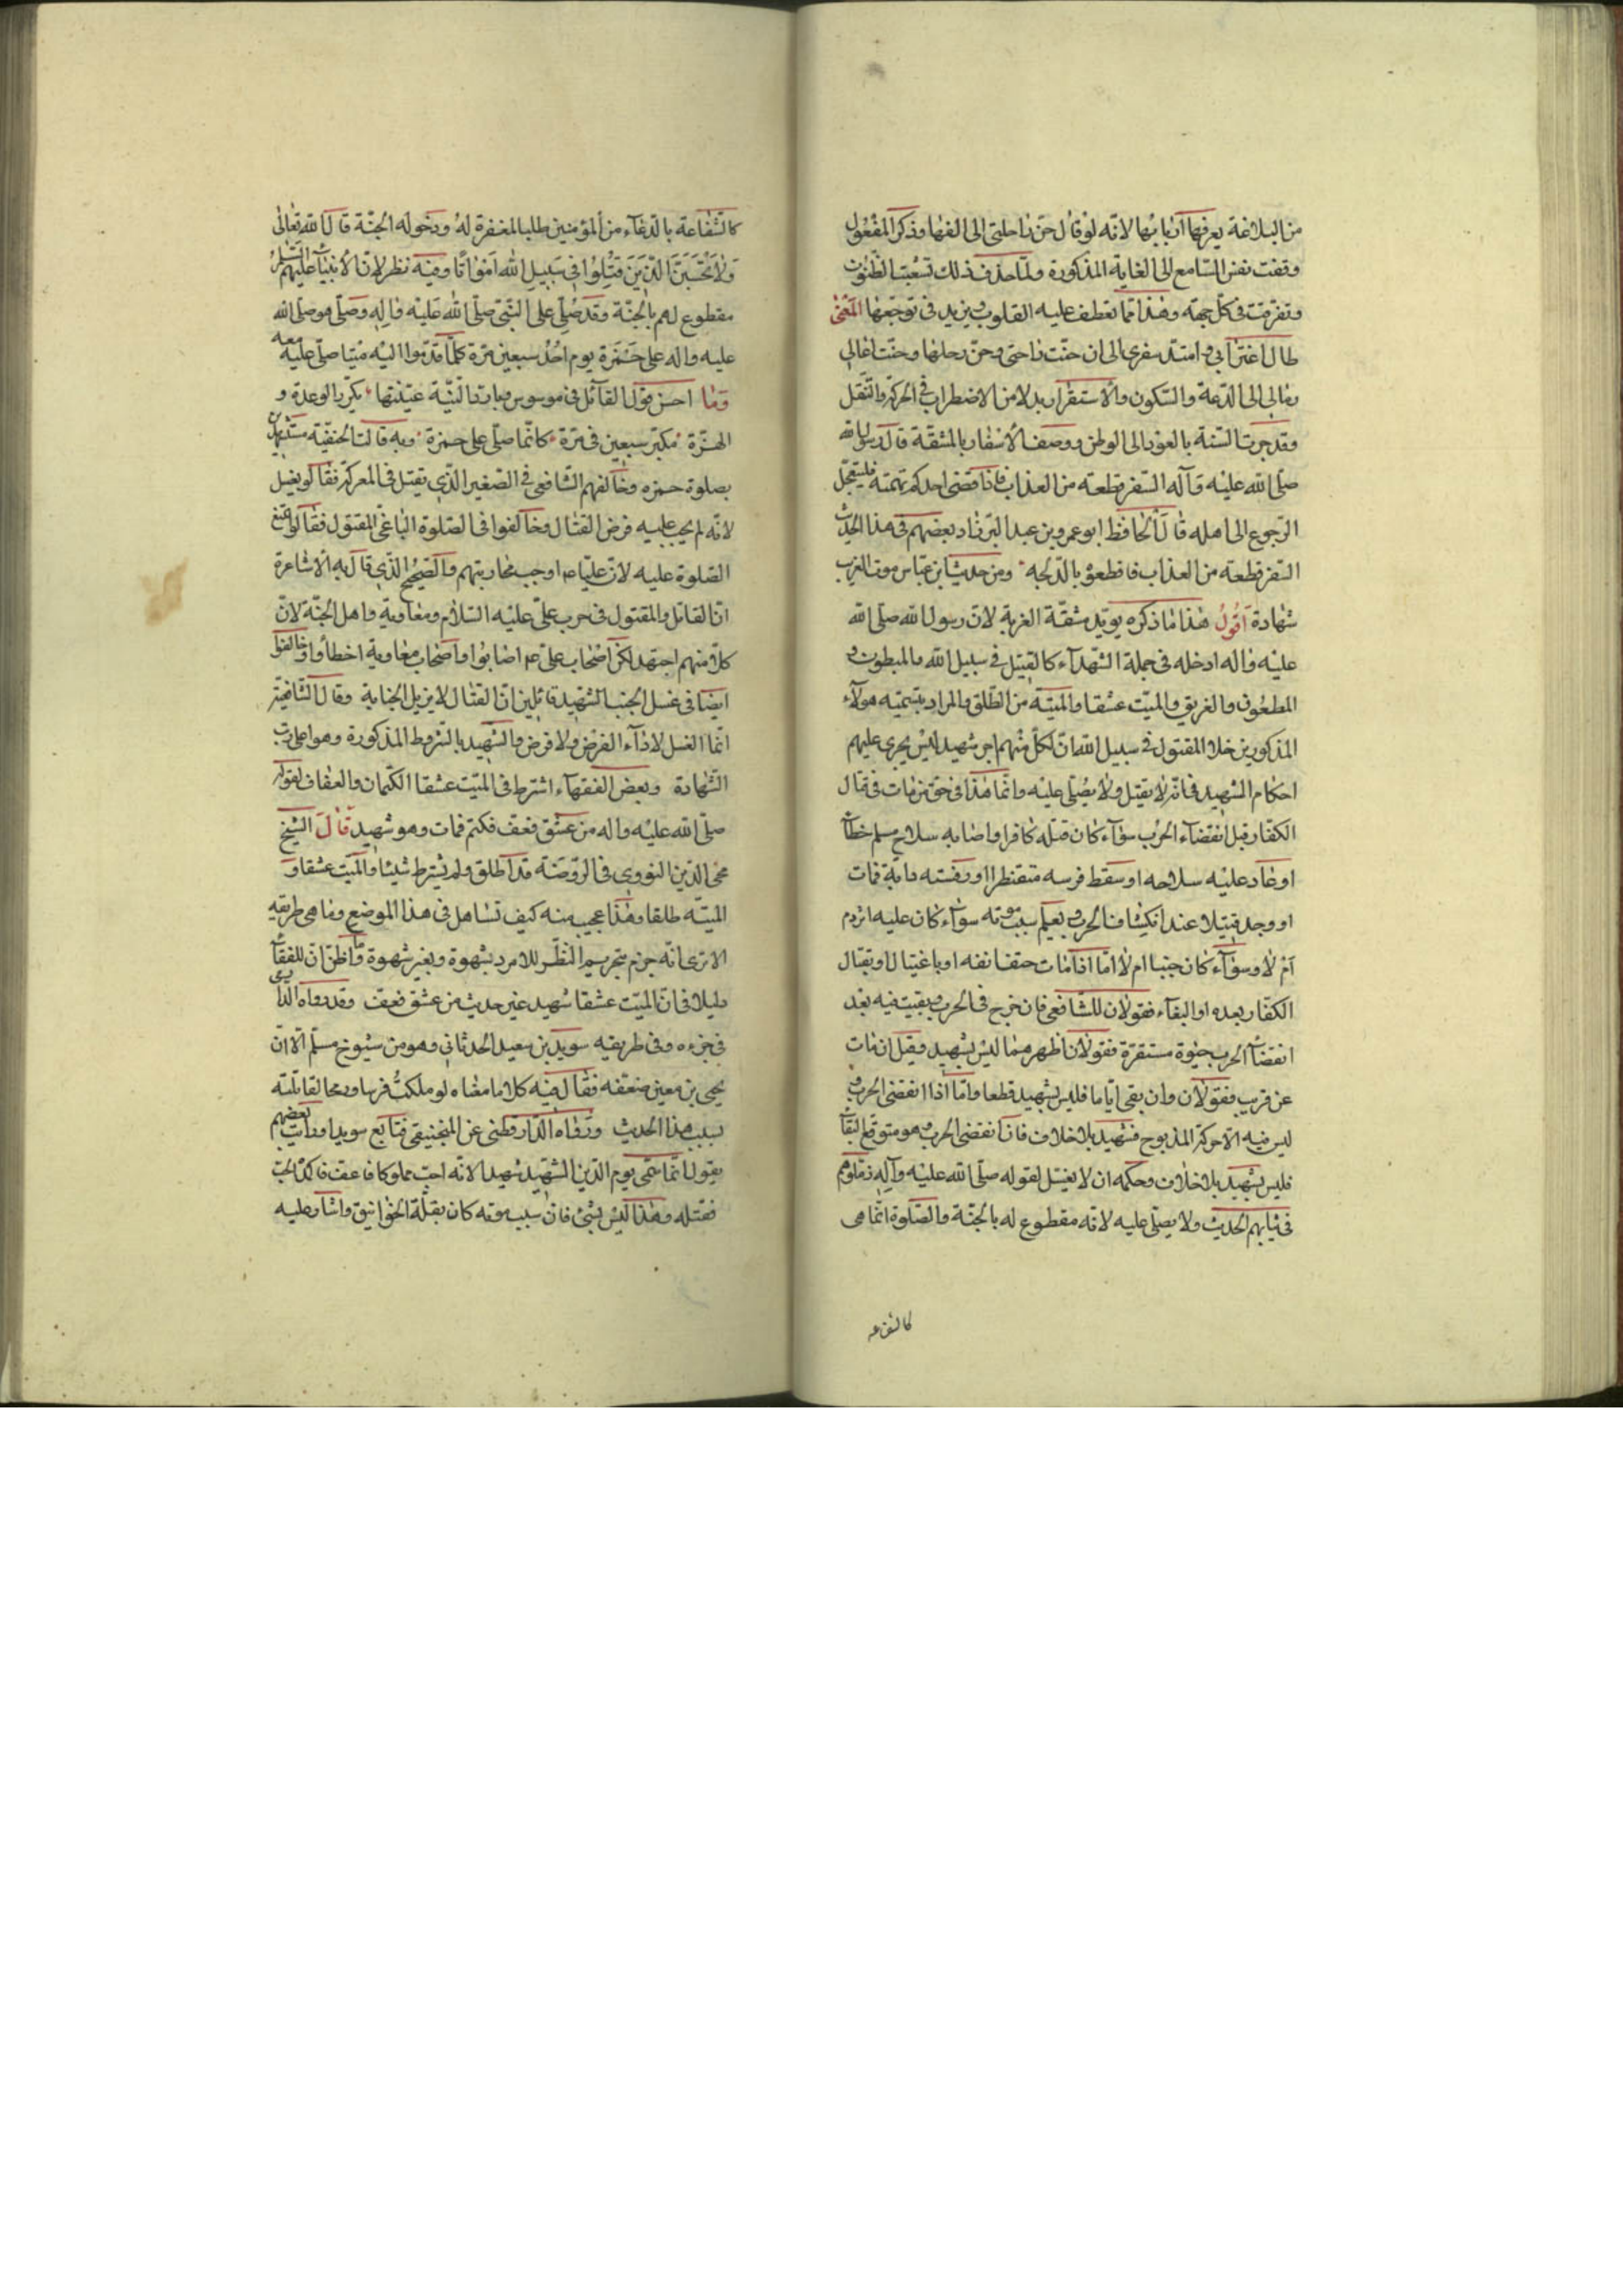 من البلاغة يعرفها اربابها لانه لو قال حن راحلتى الى الفها وذكر المفعول
وقفت نفس السامع الى الغاية المذكورة ولما حذف ذلك تشعبت الظنون
وتفرقت فى كل جهة وهذا مما تعطف عليه القلوب ويزيد فى توجعها المعنى
طال اغترابى وامتد سفرى الى ان حنت راحتى وحن رحلها وحنت اعالى
رمالى الى الدعة والسكون والاستقرار بدلا من الاضطراب فى الحركة والتنقل
وقد جرت السنة بالعود الى الوطن ووصف الاسفار بالمشقة قال رسول الله
صلى الله عليه وآله السفر قطعة من العذاب فاذا قضى احدكم نهمته فليتعجل
الرجوع الى اهله قال الحافظ ابو عمرو بن عبد البر زاد بعضهم فى هذا الحديث
السفر قطعة من العذاب فاقطعوه بالدلجه ومن حديث ابن عباس موت الغريب
شهادة اقول هذا ما ذكره يؤيد مشقة الغربة لان رسول الله صلى الله
عليه واله ادخله فى جملة الشهدآء كالقتيل فى سبيل الله والمبطون و
المطعون والغريق والميت عشقا والميتة من الطلق والمراد بتسميه هولآء
المذكورين خلا المقتول فى سبيل الله ان لكل منهم اجر شهيد ليس يجرى عليهم
احكام الشهيد فانه لا يغسل ولا يصلى عليه وانما هذا فى حق من مات فى قتال
الكفار قبل انقضآء الحرب سوآء كان قتله كافر او اصابه سلاح مسلم خطآء
او عاد عليه سلاحه او سقط فرسه متقنطرا او رفسته دابة فمات
او وجد قتيلا عند انكشاف الحرب ولم يعلم سبب موته سوآء كان عليه اثر دم
ام لا وسوآء كان جنبا ام لا اما اذا مات حتف انفه او باغتيال او بقتال
الكفار بعده او البغاء فقولان للشافعى فان جرح فى الحرب وبقيت فيه بعد
انقضآ الحرب حيوة مستقرة فقولان اظهرهما ليس بشهيد وقيل ان مات
عن قريب فقولان وان بقى اياما فليس بشهيد قطعا واما اذا انقضى الحرب و
ليس فيه الا حركة المذبوح فشهيد بلا خلاف فان انقضى الحرب وهو متوقع البقآء
فليس بشهيد بلا خلاف وحكمه ان لا يغسل لقوله صلى الله عليه وآله زملوهم
فى ثيابهم الحديث ولا يصلى عليه لانه مقطوع له بالجنة والصلوة انما هى
كالشفاعه
كالشفاعة بالدعآء من المؤمنين طلبا لمغفرة له ودخوله الجنة قال الله تعالى
ولا تحسبن الذين قتلوا فى سبيل الله امواتا وفيه نظر لان الانبيآء عليهم السلم
مقطوع لهم بالجنة وقد صلى على النبى صلى الله عليه واله وصلى هو صلى الله
عليه واله على حمزة يوم احد سبعين مرة كلما قدموا اليه ميتا صلى عليه معه
وما احسن قول القائل فى موسوس وبارد النية عينتها يكرر الوعدة و
الهزة مكبر سبعين فى مرة كانما صلى على حمزة وبه قالت الحنفية مستدلين
بصلوة حمزه وخالفهم الشافعى فى الصغير الذى يقتل فى المعركة فقالو يغسل
لانه لم يجب عليه فرض القتال وخالفوا فى الصلوة الباغى المقتول فقالوا تمنع
الصلوة عليه لان عليا ع اوجب محاربتهم والصحيح الذى قال به الاشاعرة
ان القاتل والمقتول فى حرب على عليه السلام ومعاوية واهل الجنة لان
كلا منهم اجتهد لكن اصحاب على ع اصابوا واصحاب معاوية اخطأوا وخالفوا
ايضا فى غسل الجنب الشهيد قائلين ان القتال لا يزيل الجنابة وقال الشافعية
انما الغسل لاداء الفرض ولا فرض والشهيد بالشروط المذكورة وهو اعلى رتب
الشهادة وبعض الفقهاء اشترط فى الميت عشقا الكتمان والعفاف لقوله
صلى الله عليه واله من عشق فعف فكتم فمات وهو شهيد قال الشيخ
محى الدين النووى فى الروضة قد اطلق ولم يشترط شيئا والميت عشقا و
الميتة طلقا وهذا عجيب منه كيف تساهل فى هذا الموضع وما هى طريقه
الا ترى انه جزم بتحريم النظر للامرد بشهوة وبغير شهوة وما اظن ان للفقهآء
دليلا فى ان الميت عشقا شهيد غير حديث من عشق فعف وقد رواه الدا
فى جزءه وفى طريقه سويد بن سعيد الحدثانى وهو من شيوخ مسلم الا ان
يحيى بن معين ضعفه فقال فيه كلاما معناه لو ملكت فرسا ورمحا لقاتلته
بسبب هذا الحديث ورواه الدارقطنى عن المنجنيقى فتابع سويدا ورأيت بعضهم
يقول انما سمى يوم الدين الشهيد شهيدا لانه احب مملوكا فاعف فاكمد الحب
فقتله وهذا ليس بشئ فان سبب موته كان بقلة الخوانيق واشار عليه